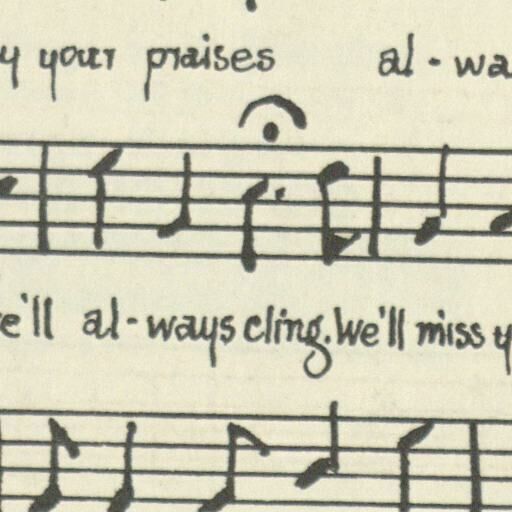 your praises al-
e'll al-ways cling. We'll miss